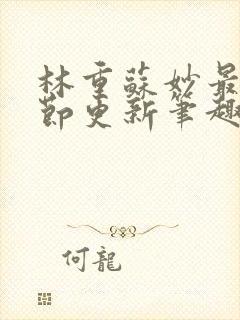 林重蘇妙最
節更新筆趣
何龍